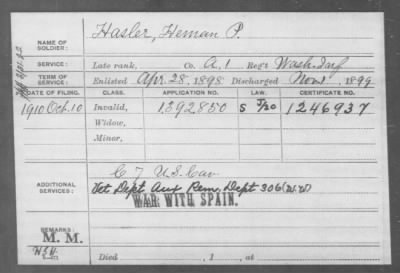 NAME OF SOLDIER: Hasler, Heman P.
SERVICE: Late rank, Co. A, 1 Reg't Wash. Inf
TERM OF SERVICE: Enlisted Apr. 28, 1898 Discharged Nov 1, 1899
DATE OF FILING. CLASS. APPLICATION NO. LAW. CERTIFICATE NO.
1910 Oct. 10 Invalid, 1392850 S 1246937
Widow,
Minor,
C 7 U.S. Cav
ADDITIONAL SERVICES: Vet Dept Aux Rem. Dept 306
WAR WITH SPAIN.
REMARKS:
M. M.
Died , 1 , at